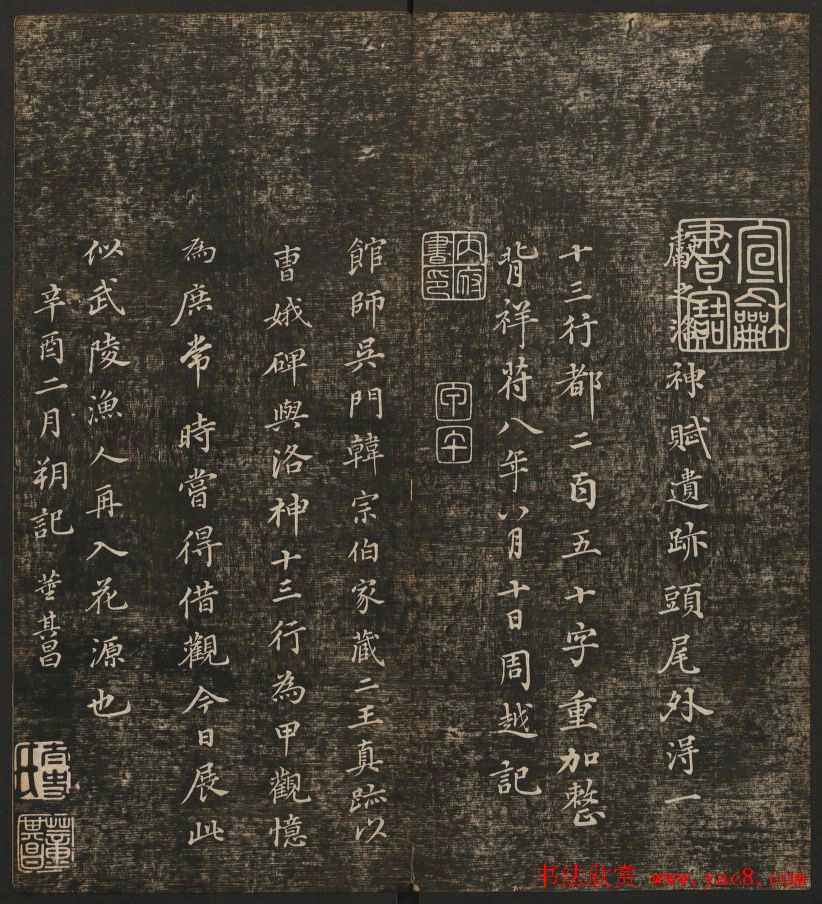 宣龢書寶
之洛神賦遺跡頭尾外淂一
十三行都二百五十字重加整
背祥苻八年八月十日周越記
內府書印
館師吳門韓宗伯家藏二王真跡以
曹娥碑與洛神十三行為甲觀憶
為庶常時嘗得借觀今日展此
似武陵漁人再入花源也
辛酉二月朔記 董其昌
太史氏
董其昌
书法欣赏 www.yac8.com